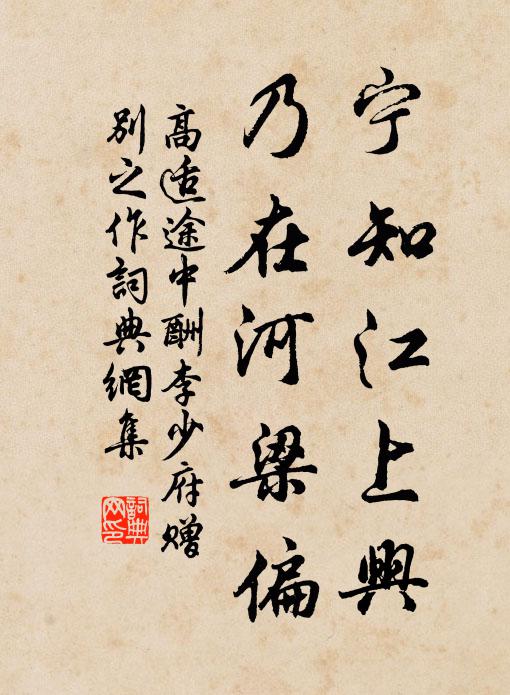 宁知江上興
乃在河梁偏
高适途中酬李少府贈
別之作詞典網集
詞典網印